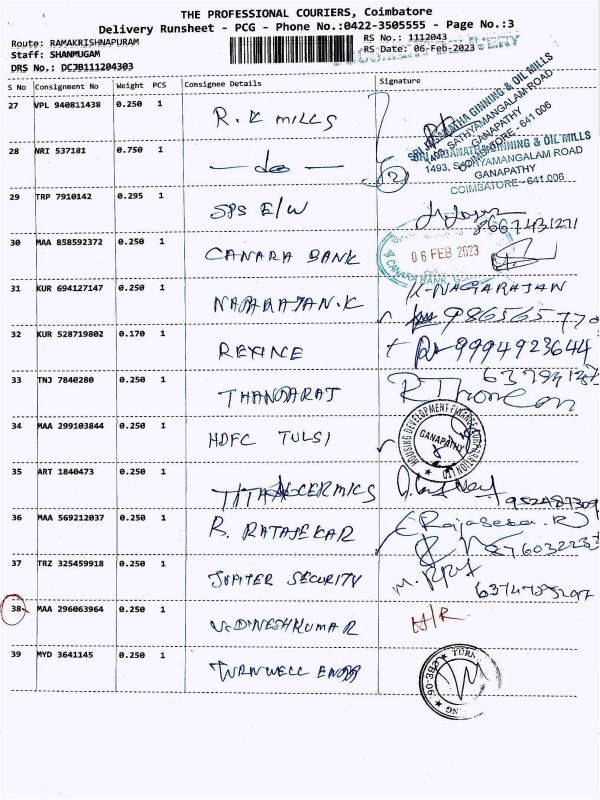 THE PROFESSIONAL COURIERS, Coimbatore
Delivery Runsheet - PCG - Phone No.:0422-3505555 - Page No.:3
Route: RAMAKRISHNAPURAM RS No.: 1112043
Staff: SHANMUGAM RS Date: 06-Feb-2023
DRS No.: DCJB111204303 DELIVERY
S No Consignment No Weight PCS Consignee Details Signature
27 VPL 940811438 0.250 1 R.K MILLS
SRI RANGANATHA GINNING & OIL MILLS
1493, SATHYAMANGALAM ROAD
GANAPATHY
COIMBATORE - 641 006
28 NRI 537181 0.750 1 — do — 2
GINNING & OIL MILLS
1493, SATHYAMANGALAM ROAD
GANAPATHY
COIMBATORE - 641 006
29 TRP 7910142 0.295 1 SPS E/W 8667431271
30 MAA 858592372 0.250 1 CANARA BANK 06 FEB 2023
CANARA BANK
31 KUR 694127147 0.250 1 NAGARAJAN.K K-NAGARAJAN
986565770
32 KUR 528719802 0.170 1 REXINE 9994923644
33 TNJ 7840280 0.250 1 THANGARAJ
34 MAA 299103844 0.250 1 HDFC TULSI
HOUSING DEVELOPMENT FINANCE CORPORATION LTD
GANAPATHY
35 ART 1840473 0.250 1 TITAN CERMICS
36 MAA 569212037 0.250 1 R. RAJASEKAR Rajasekar.R
37 TRZ 325459918 0.250 1 JUPITER SECURITY
38 MAA 296063964 0.250 1 V.DINESHKUMAR H/R
39 MYD 3641145 0.250 1 TURNWELL ENGG
TURN
CBE-06